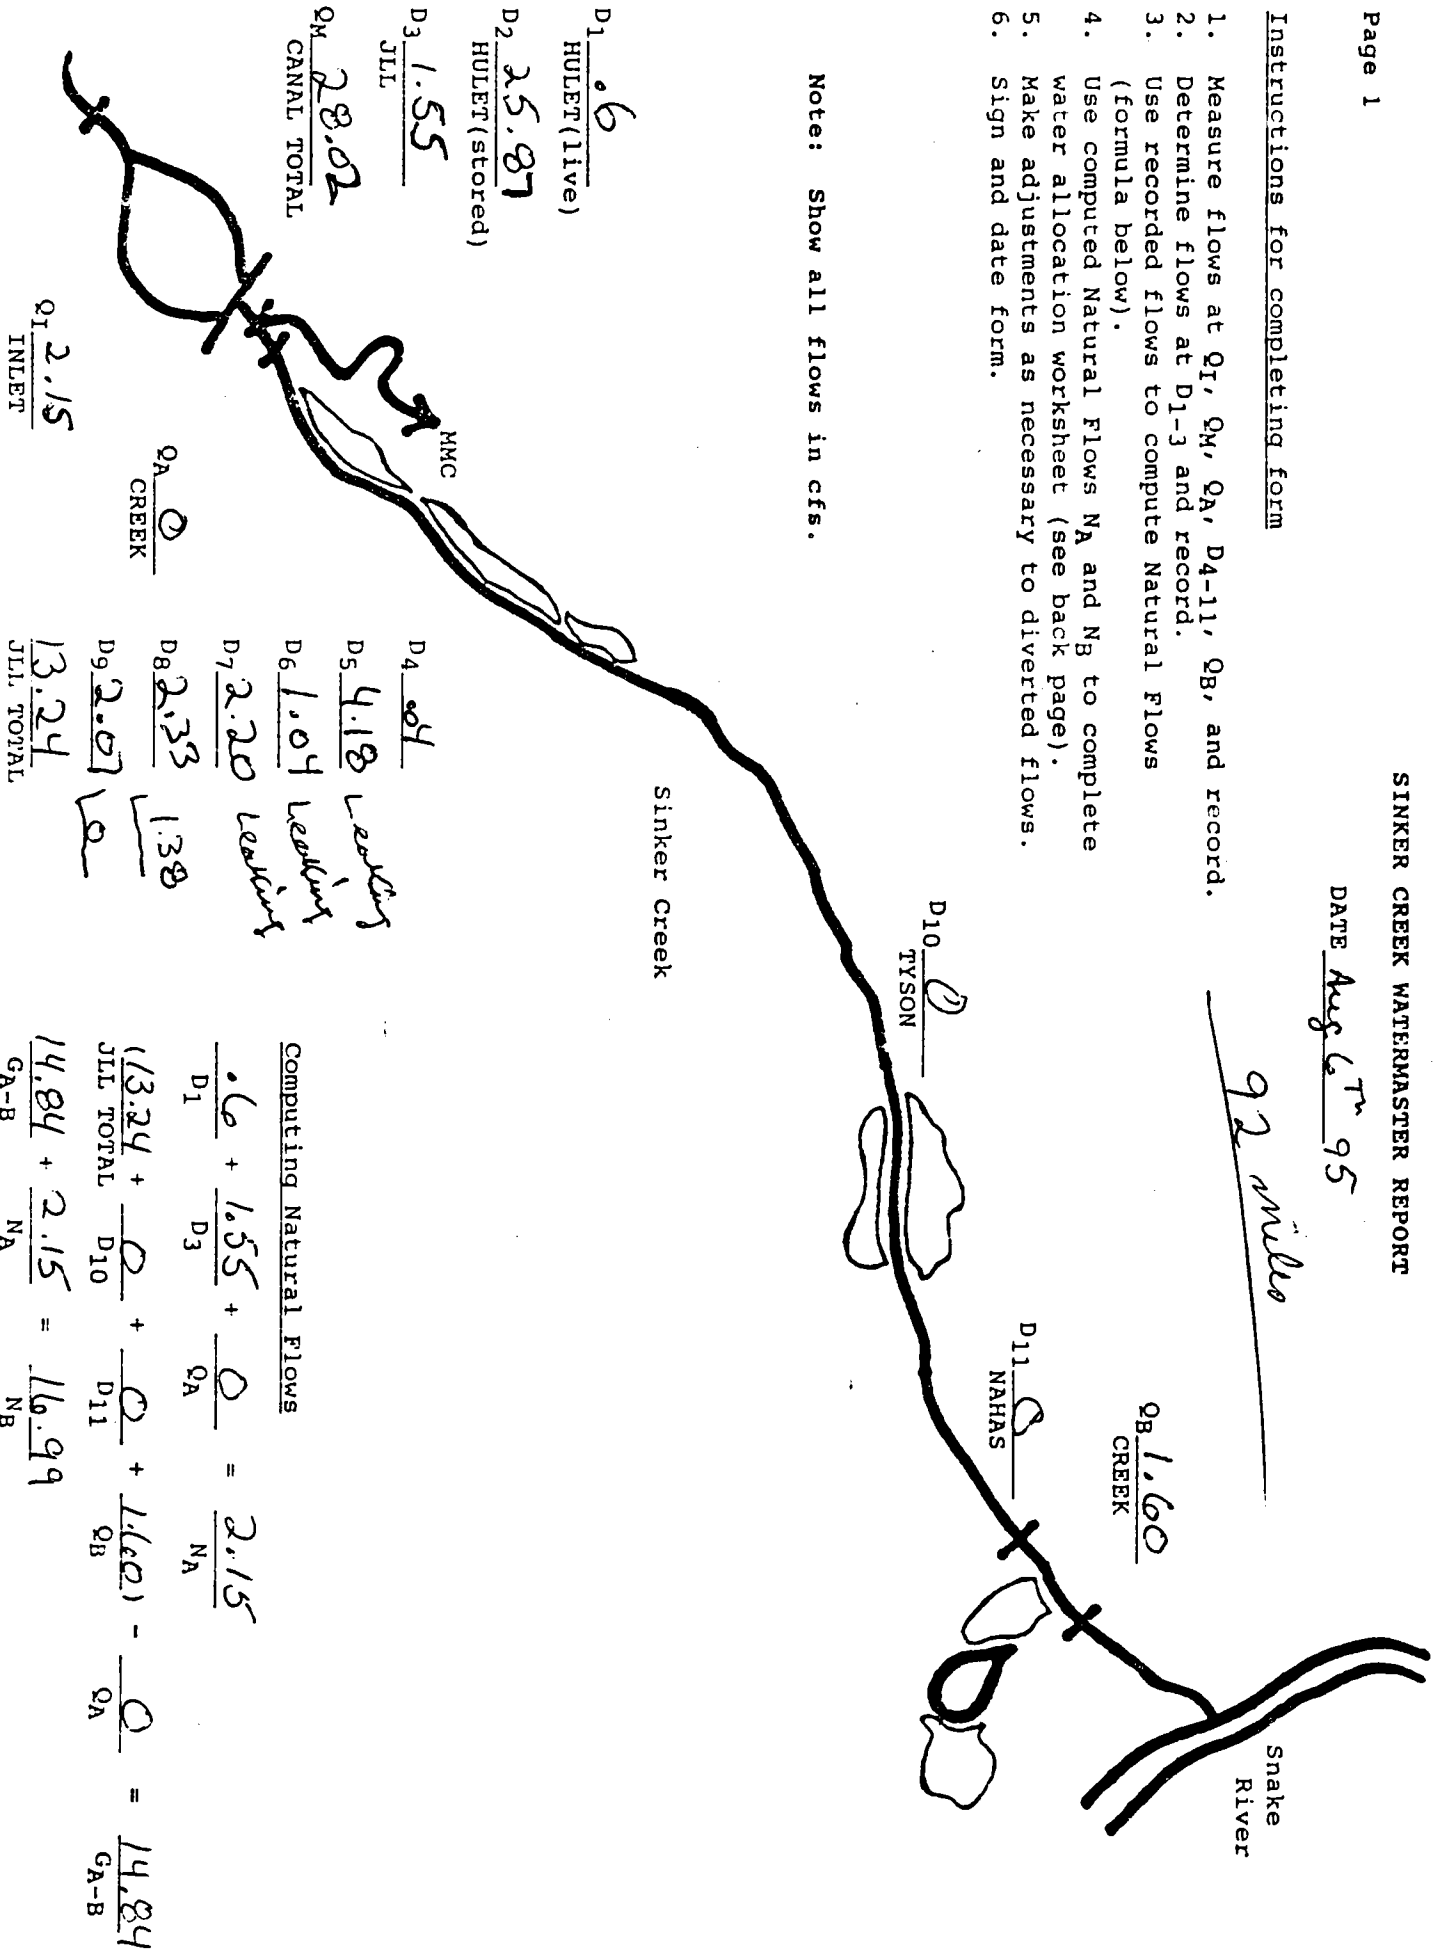 Page 1
SINKER CREEK WATERMASTER REPORT
DATE Aug 6Th 95
Instructions for completing form
1. Measure flows at QI, QM, QA, D4-11, QB, and record.
2. Determine flows at D1-3 and record.
3. Use recorded flows to compute Natural Flows
(formula below).
4. Use computed Natural Flows NA and NB to complete
water allocation worksheet (see back page).
5. Make adjustments as necessary to diverted flows.
6. Sign and date form.
92 miles
Note: Show all flows in cfs.
D1 .6
HULET(live)
D2 25.87
HULET(stored)
D3 1.55
JLL
QM 28.02
CANAL TOTAL
MMC
QI 2.15
INLET
QA 0
CREEK
Sinker Creek
D10 0
TYSON
D11 0
NAHAS
QB 1.60
CREEK
Snake
River
D4 .04
D5 4.18 Leaking
D6 1.04 Leaking
D7 2.20 Leaking
D8 2.33 1.38
D9 2.07 0
13.24
JLL TOTAL
Computing Natural Flows
.6 + 1.55 + 0 = 2.15
D1 D3 QA NA
(13.24 + 0 + 0 + 1.60) - 0 = 14.84
JLL TOTAL D10 D11 QB QA GA-B
14.84 + 2.15 = 16.99
GA-B NA NB